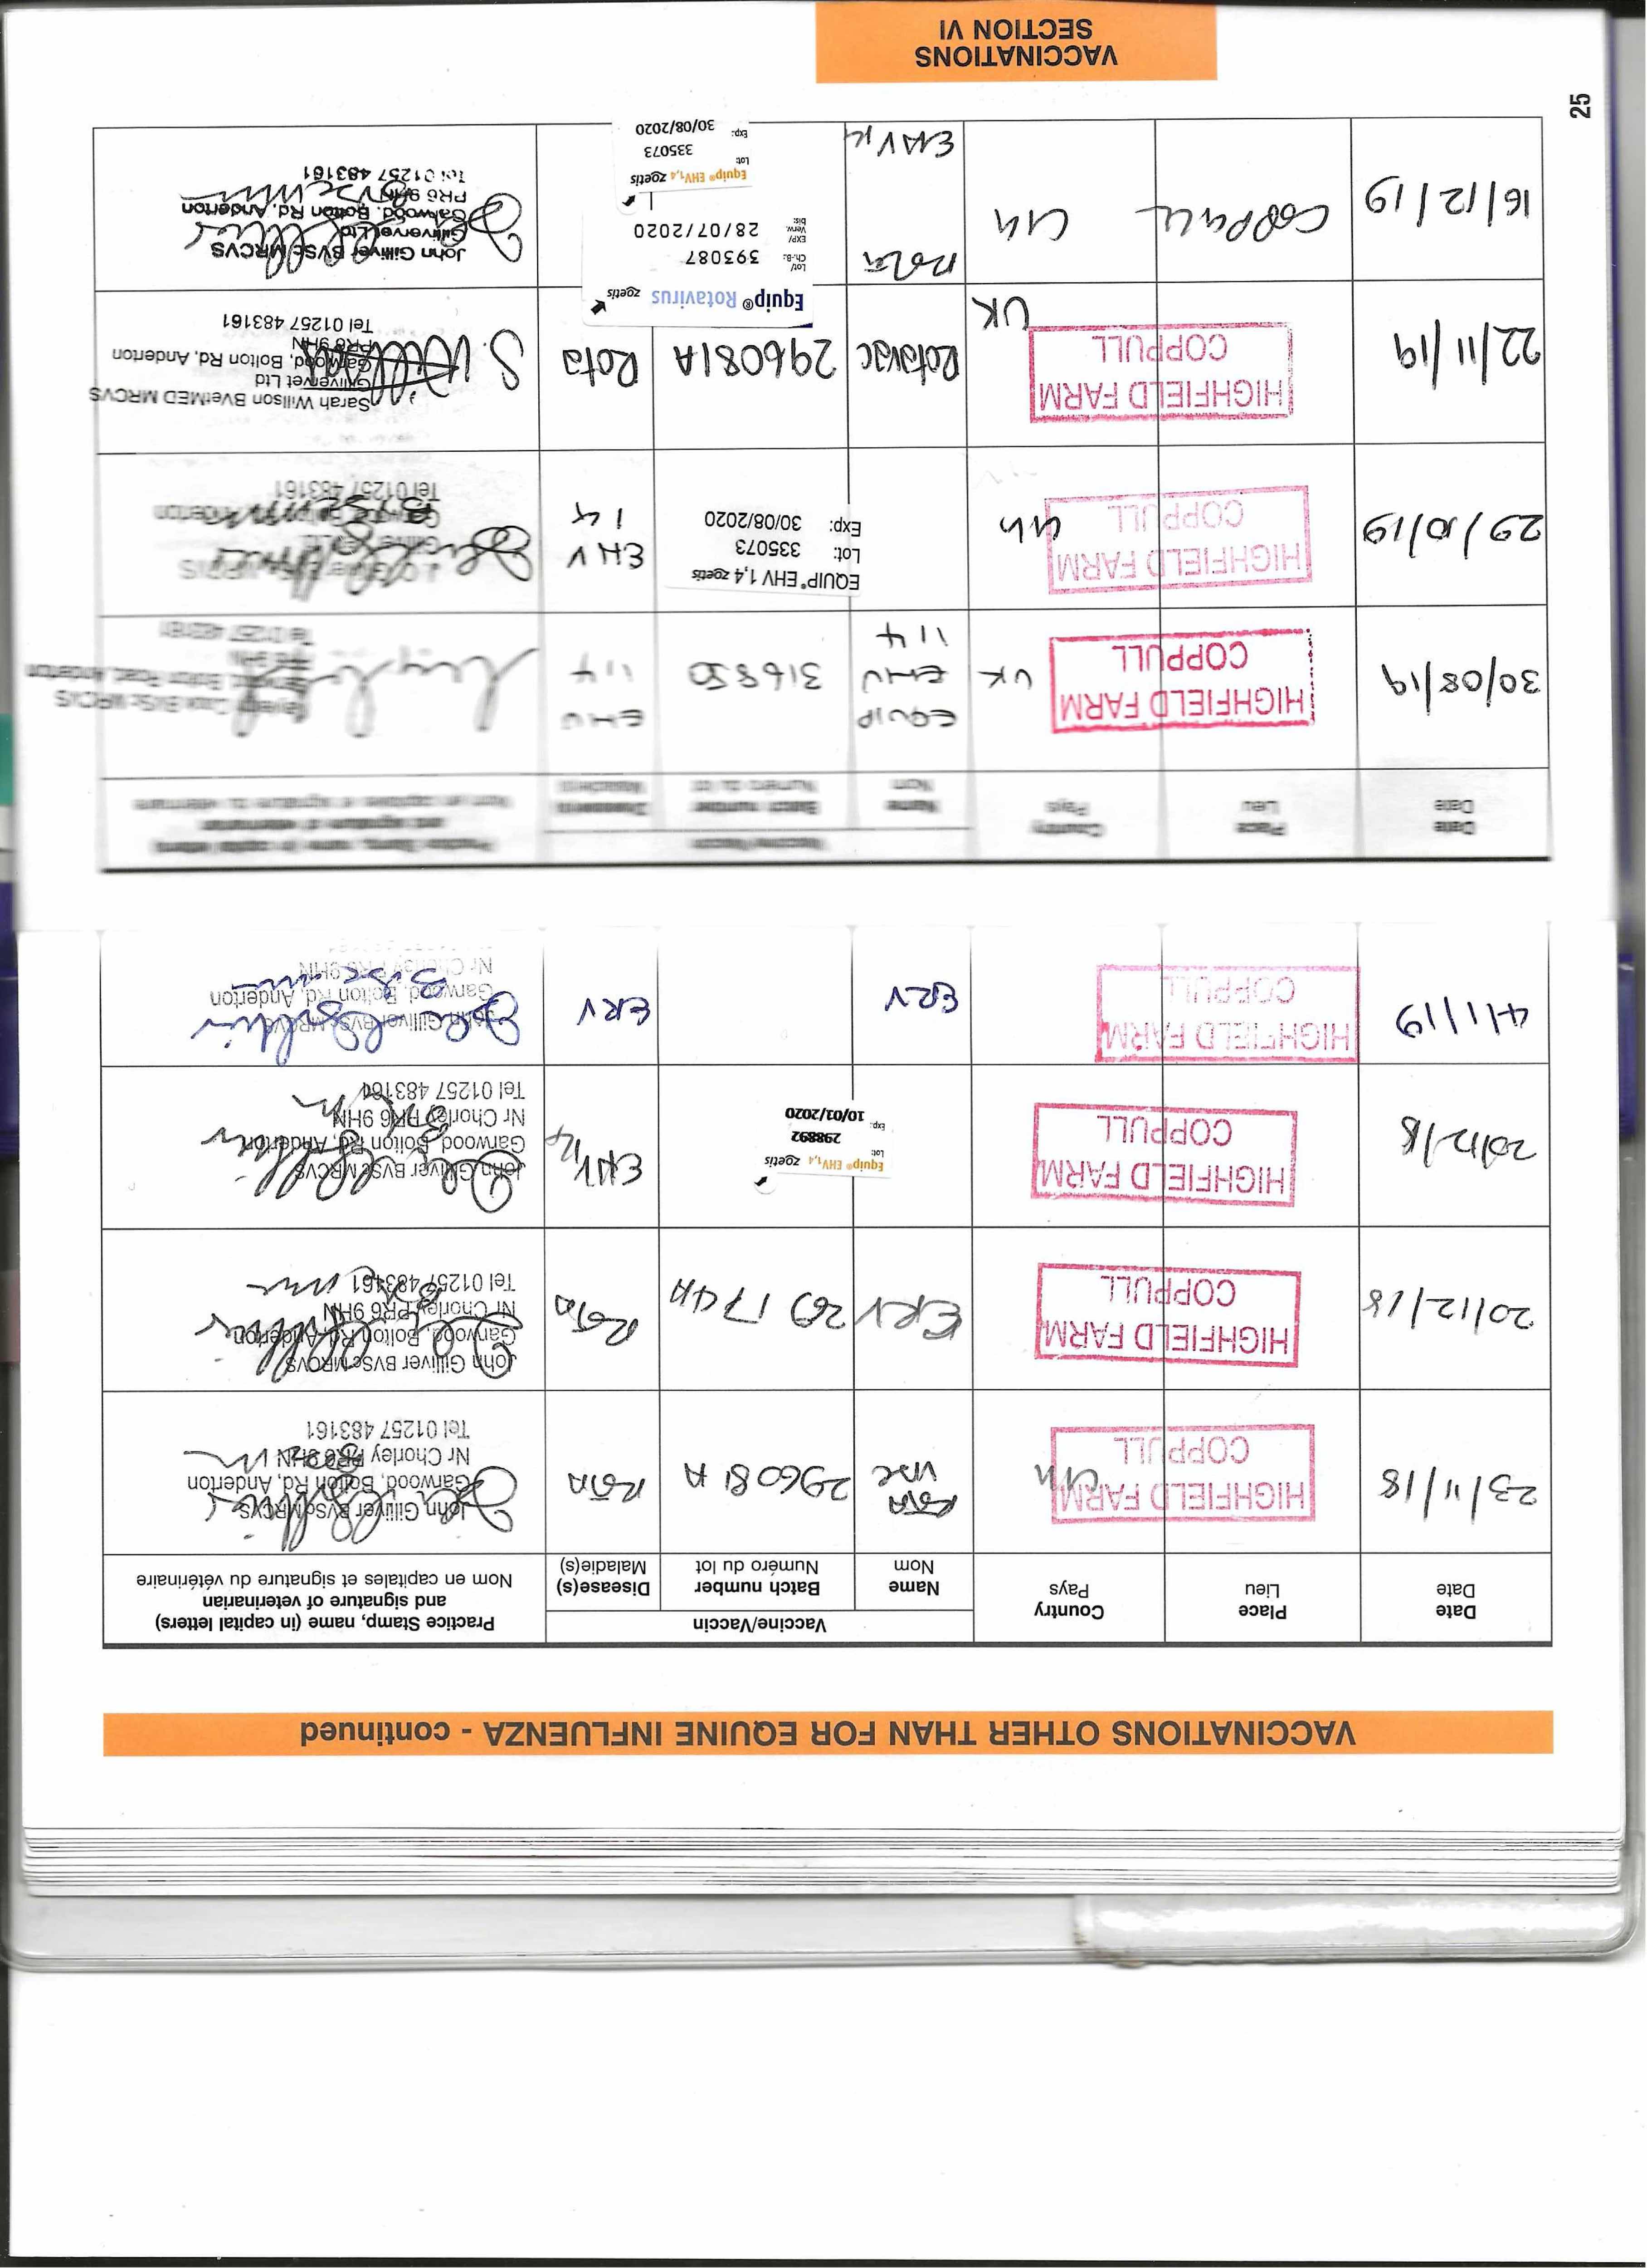 VACCINATIONS OTHER THAN FOR EQUINE INFLUENZA - continued
Date
Date
Place
Lieu
Country
Pays
Vaccine/Vaccin
Name
Nom
Batch number
Numéro du lot
Disease(s)
Maladie(s)
Practice Stamp, name (in capital letters)
and signature of veterinarian
Nom en capitales et signature du vétérinaire
23/11/18
HIGHFIELD FARM
COPPULL
Uk
Rota
vac
296081 A
Rota
John Gilliver BVSc MRCVS
Garwood, Bolton Rd, Anderton
Nr Chorley PR6 9HN
Tel 01257 483161
20/12/18
HIGHFIELD FARM
COPPULL
ERV
Rota
John Gilliver BVSc MRCVS
Garwood, Bolton Rd, Anderton
Nr Chorley PR6 9HN
Tel 01257 483161
20/12/18
HIGHFIELD FARM
COPPULL
Equip® EHV1,4 zoetis
Lot: 298892
Exp: 10/01/2020
EHV1,4
John Gilliver BVSc MRCVS
Garwood, Bolton Rd, Anderton
Nr Chorley PR6 9HN
Tel 01257 483161
4/1/19
HIGHFIELD FARM
COPPULL
ERV
ERV
John Gilliver BVSc MRCVS
Garwood, Bolton Rd, Anderton
Nr Chorley PR6 9HN
Date
Date
Place
Lieu
Country
Pays
Vaccine/Vaccin
Name
Nom
Batch number
Numéro du lot
Disease(s)
Maladie(s)
Practice Stamp, name (in capital letters)
and signature of veterinarian
Nom en capitales et signature du vétérinaire
30/08/19
HIGHFIELD FARM
COPPULL
UK
EQUIP
EHV
1,4
316850
EHV
1,4
Bolton Road, Anderton
PR6 9HN
Tel 01257 483161
29/10/19
HIGHFIELD FARM
COPPULL
Uk
EQUIP® EHV 1,4 zoetis
Lot: 335073
Exp: 30/08/2020
EHV
1 4
Tel 01257 483161
22/11/19
HIGHFIELD FARM
COPPULL
UK
Rotavac
296081A
Rota
Sarah Willson BVetMED MRCVS
Gillivervet Ltd
Garwood, Bolton Rd, Anderton
PR6 9HN
Tel 01257 483161
16/12/19
Coppull
Uk
Rota
EHV 1,4
Equip® Rotavirus zoetis
Lot/
Ch.-B.: 393087
EXP/
Verw.
bis: 28/07/2020
Equip® EHV1,4 zoetis
Lot: 335073
Exp: 30/08/2020
John Gilliver BVSc MRCVS
Gillivervet Ltd
Garwood, Bolton Rd, Anderton
PR6 9HN
Tel 01257 483161
25
VACCINATIONS
SECTION VI